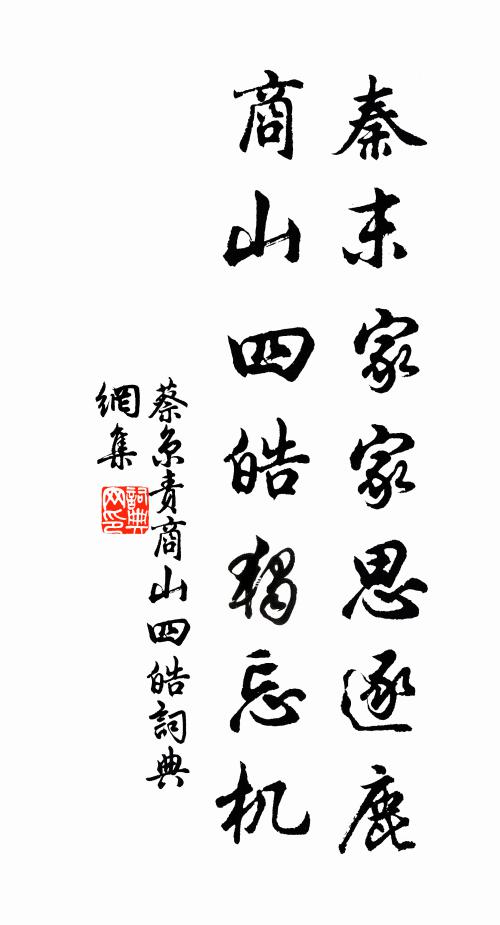 秦末家家思逐鹿
商山四皓独忘机
蔡京责商山四皓詞典
網集
詞典
网印